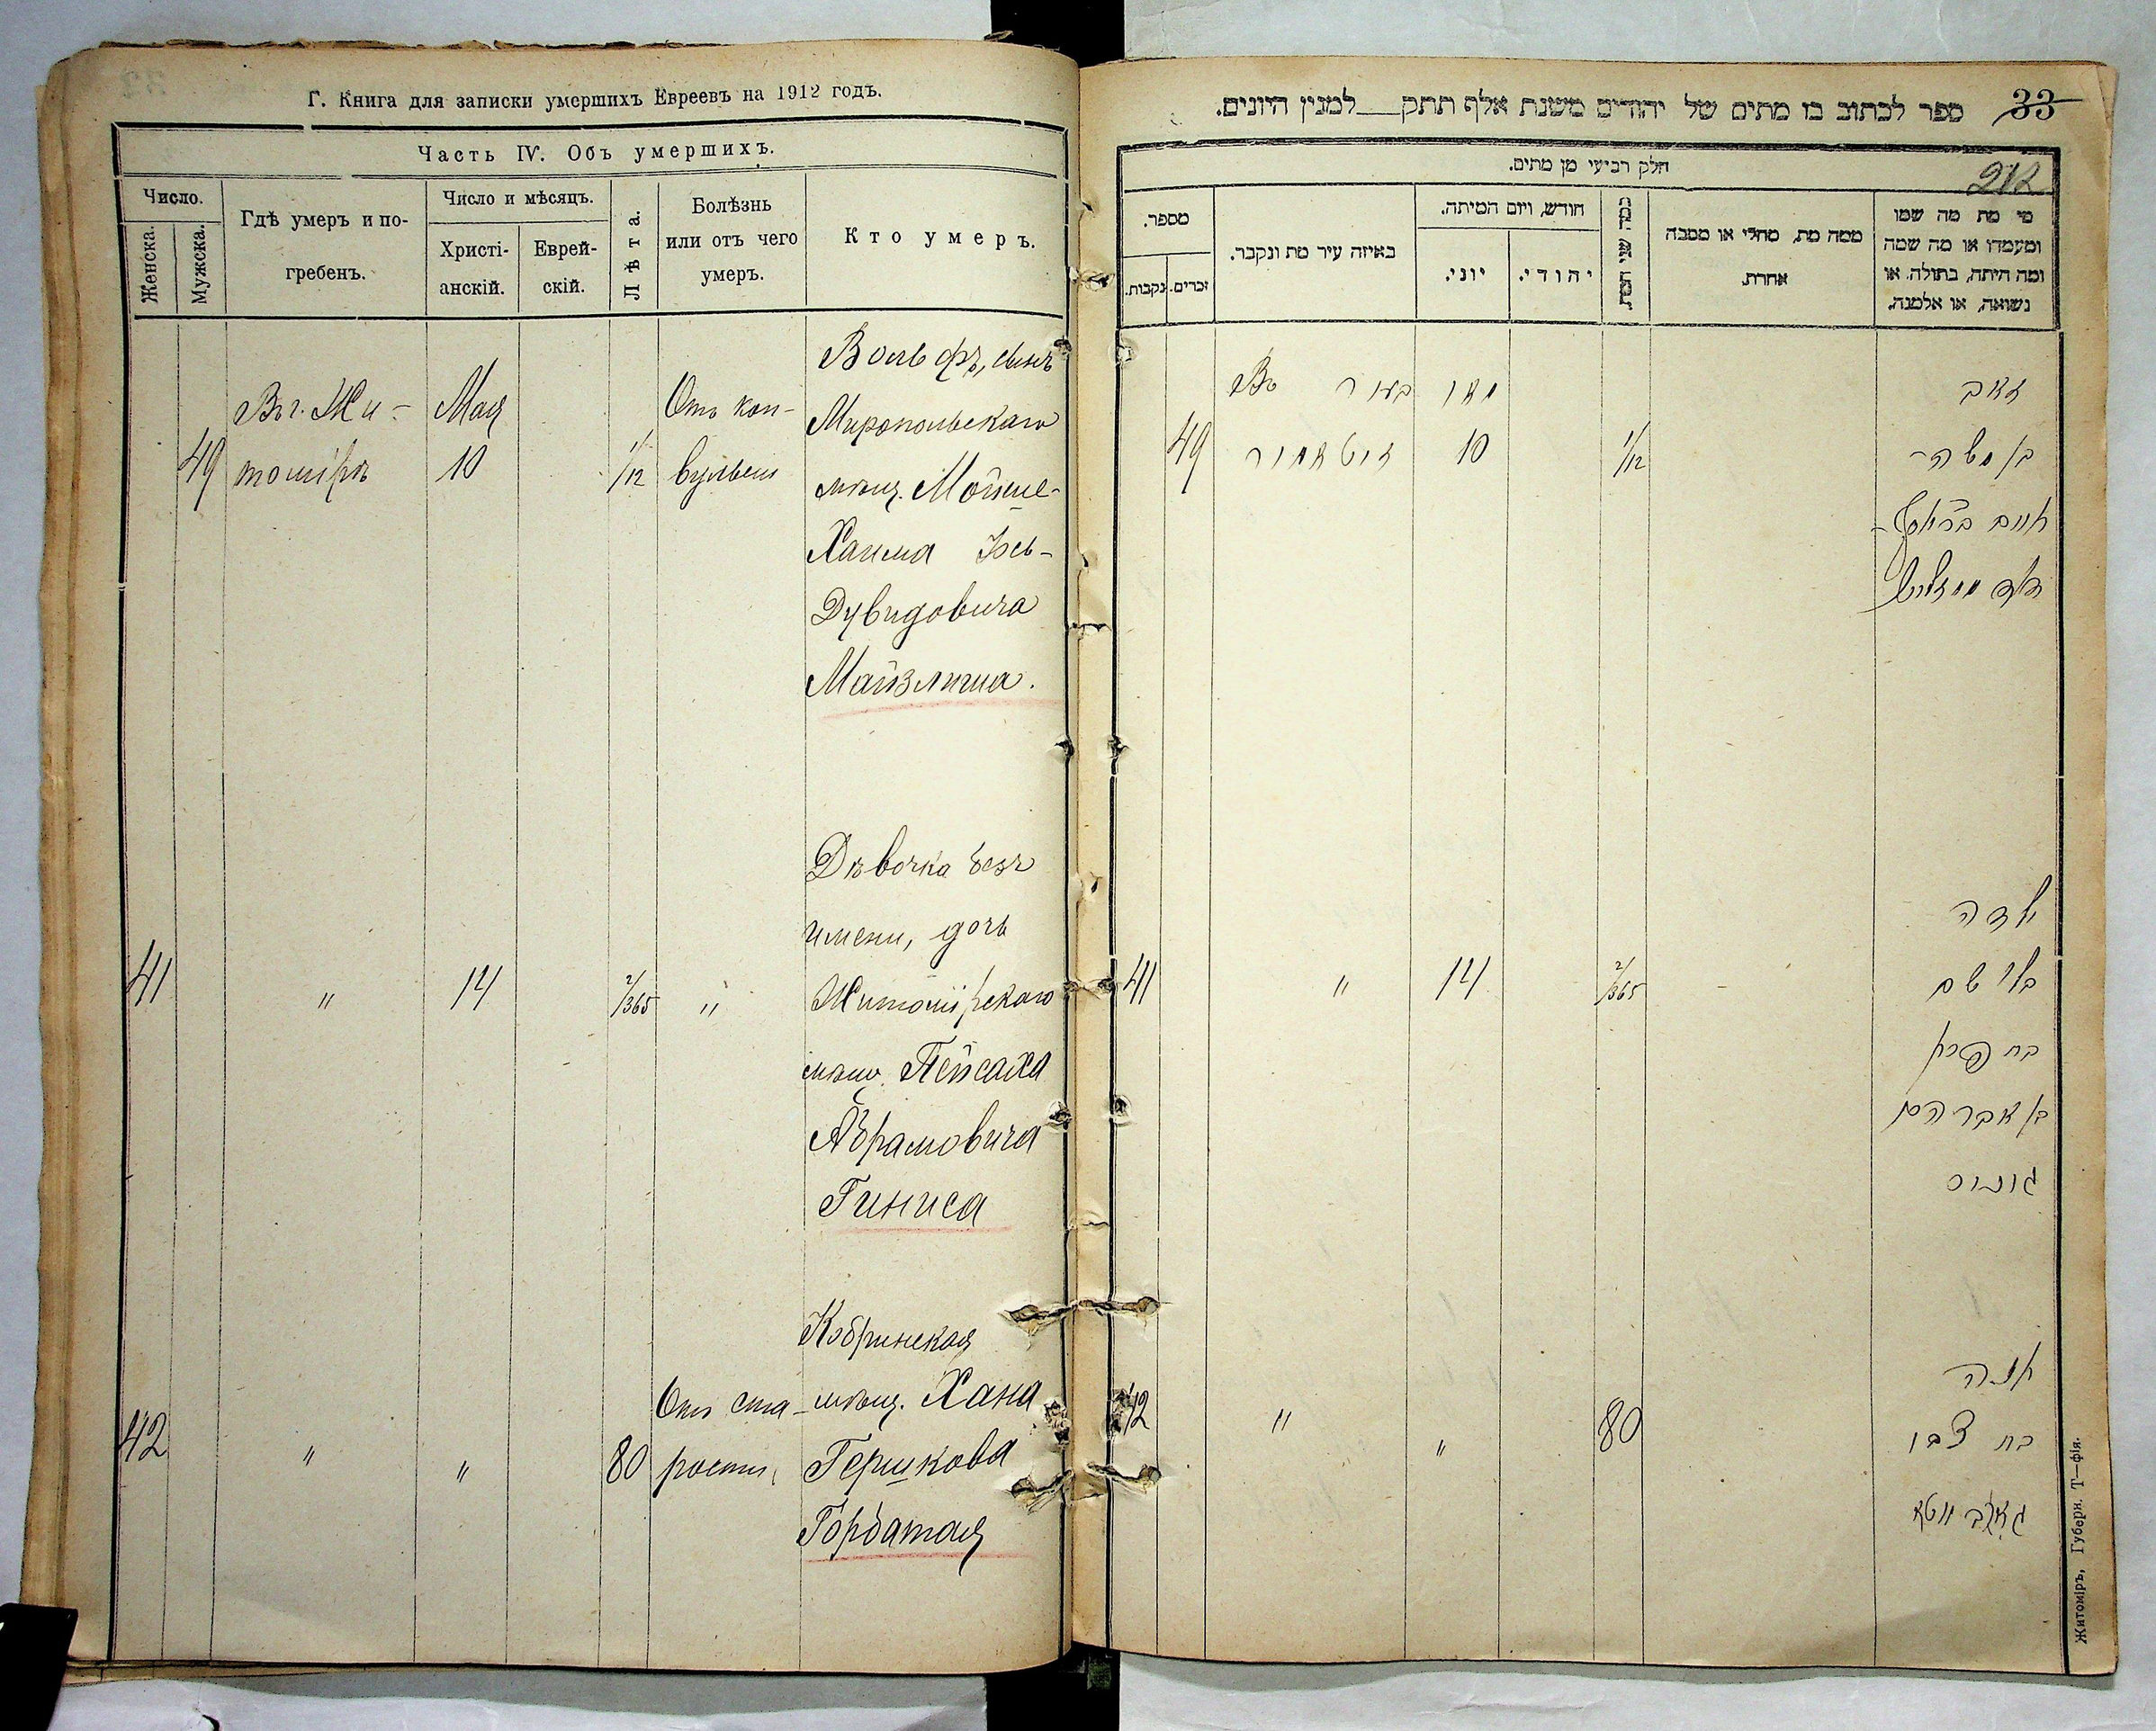 Г. Книга для записки умершихъ Евреевъ на 1912 годъ.
Часть IV. Объ умершихъ.
Число.
Женска.
Мужска.
Гдѣ умеръ и по-
гребенъ.
Число и мѣсяцъ.
Христі-
анскій.
Еврей-
скій.
Лѣта.
Болѣзнь
или отъ чего
умеръ.
Кто умеръ.
49
Въ г. Жи-
томірѣ
Мая
10
1/12
Отъ кон-
вульсіи
Вольфъ, сынъ
Миропольскаго
мѣщ. Мойше-
Хаима Іось-
Дувидовича
Майзлиша.
41
"
14
2/365
"
Дѣвочка безъ
имени, дочь
Житомірскаго
мѣщ. Пейсаха
Абрамовича
Гиниса
42
"
"
80
Отъ ста-
рости
Кобринская
мѣщ. Хана
Гершкова
Горбатая
33
ספר לכתוב בו מתים של יהודים משנת אלף תתק___למנין היונים.
212
חלק רביעי מן מתים.
מספר.
נקבות.
זכרים.
באיזה עיר מת ונקבר.
חודש, ויום המיתה.
יוני.
יהודי.
כמה שני חיות
ממה מת, מחלי או מסבה
אחרת.
מי מת מה שמו
ומעמדו או מה שמה
ומה היתה, בתולה, או
נשואה, או אלמנה.
49
Въ בעיר
זיטאמיר
מאי
10
1/12
זאב
בן משה-
חיים
דוד מייזליש
41
"
14
2/365
ילדה
בלי שם
בת פסח
בן אברהם
גיניס
42
"
"
80
חנה
בת צבי
Житоміръ, Губерн. Т—фія.